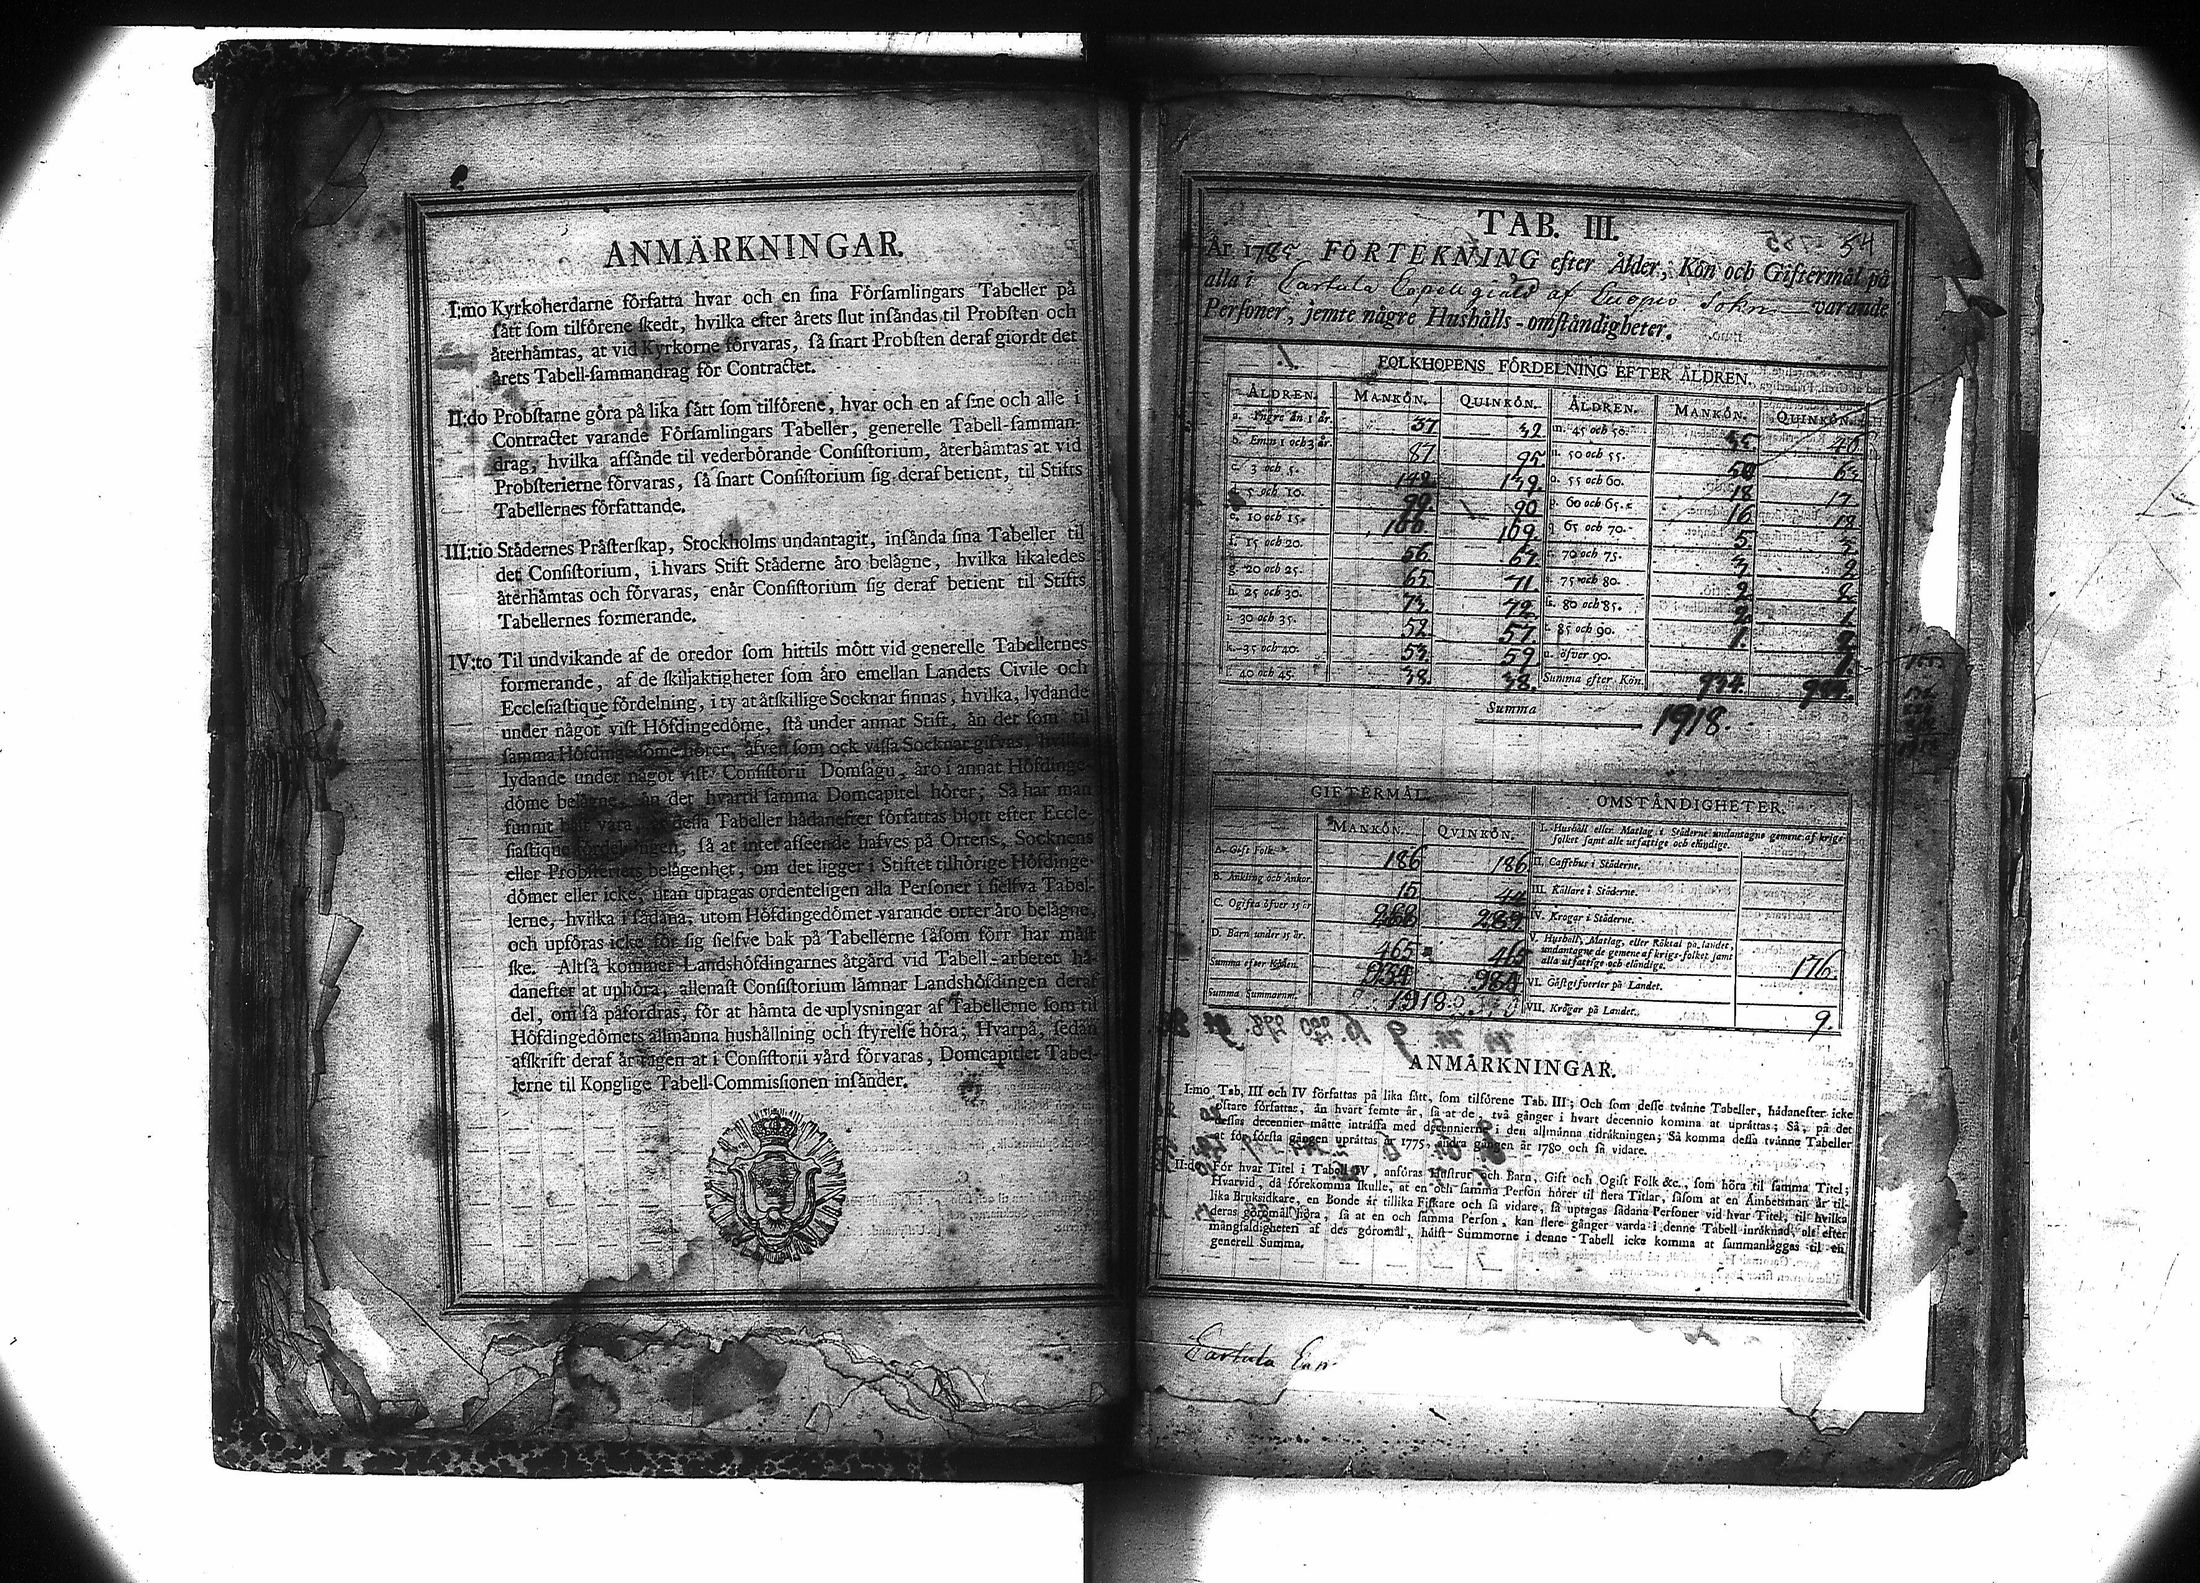 ANMÄRKNINGAR.
I:mo Kyrkoherdarne författa hvar och en sina Församlingars Tabeller på
sått som tilförene skedt, hvilka efter årets slut insåndas til Probsten och
återhåmtas, at vid Kyrkorne förvaras, så snart Probsten deraf giordt det
årets Tabell-sammandrag för Contractet.
II:do Probstarne göra på lika sått som tilförene, hvar och en af sine och alle i
Contractet varande Församlingars Tabeller, generelle Tabell-samman-
drag, hvilka afsånde til vederbörande Consistorium, återhåmtas at vid
Probsterierne förvaras, så snart Consistorium sig deraf betient, til Stifts
Tabellernes författande.
III:tio Stådernes Pråsterskap, Stockholms undantagit, insånda sina Tabeller til
det Consistorium, i hvars Stift Ståderne åro belågne, hvilka likaledes
återhåmtas och förvaras, enår Consistorium sig deraf betient til Stifts
Tabellernes formerande.
IV:to Til undvikande af de oredor som hittils mött vid generelle Tabellernes
formerande, af de skiljaktigheter som åro emellan Landets Civile och
Ecclesiastique fördelning, i ty at åtskillige Socknar finnas, hvilka, lydande
under något vist Höfdingedöme, stå under annat Stift, ån det som til
samma Höfdingedöme hörer, åfven som ock vissa Socknar gifvas, hvilka
lydande under något vist Consistorii Domsagu, åro i annat Höfdinge-
döme belågne, ån det hvartil samma Domcapitel hörer; Så har man
funnit båst vara, at dessa Tabeller hådanefter författas blott efter Eccle-
siastique fördelningen, så at intet afseende hafves på Ortens, Socknens
eller Probsteriets belågenhet, om det ligger i Stiftet tilhörige Höfdinge-
dömet eller icke, utan uptagas ordenteligen alla Personer i sielfva Tabel-
lerne, hvilka i sådana, utom Höfdingedömet varande orter åro belågne,
och upföras icke för sig sielfve bak på Tabellerne såsom förr har måst
ske. Altså kommer Landshöfdingarnes åtgård vid Tabell-arbetet hå-
danefter at uphöra, allenast Consistorium låmnar Landshöfdingen deraf
del, om så påfordras, för at håmta de uplysningar af Tabellerne som til
Höfdingedömets allmånna hushållning och styrelse höra; Hvarpå, sedan
afskrift deraf år tagen at i Consistorii vård förvaras, Domcapitlet Tabel-
lerne til Konglige Tabell-Commissionen insånder.
54
TAB. III.
År 1785 FÖRTEKNING efter Ålder, Kön och Giftermål på
alla i Cartula Capellgiäld af Cuopio Sokn varande
Personer, jemte några Hushålls-omståndigheter.
FOLKHOPENS FÖRDELNING EFTER ÅLDREN.
ÅLDREN. MANKÖN. QUINKÖN. ÅLDREN. MANKÖN. QUINKÖN.
a. Yngre ån 1 år. 37 32 m. 45 och 50. 40
b. Emn 1 och 3 år. 87 95 n. 50 och 55. 50 63
c. 3 och 5. 142 139 o. 55 och 60. 18 17
d. 5 och 10. 99. 90 p. 60 och 65. 16 18
e. 10 och 15. 100 109 q. 65 och 70. 5
f. 15 och 20. 56 67. r. 70 och 75. 2
g. 20 och 25. 65 71. s. 75 och 80. 2 8
h. 25 och 30. 73 72. t. 80 och 85. 2
i. 30 och 35. 52 57. 85 och 90. 1.
k. 35 och 40. 53. 59 u. öfver 90. 1.
l. 40 och 45. 38. 38. Summa efter Kön. 934. 984.
Summa 1918.
GIFTERMÅL. OMSTÅNDIGHETER.
MANKÖN. QVINKÖN. I. Hushåll eller Matlag i Ståderne undantagne gemene af krigs-
folket samt alle utfattige och elåndige.
A. Gift Folk. 186 186 II. Caffehus i Ståderne.
B. Ånkling och Ånkor. 15 44 III. Kållare i Ståderne.
C. Ogifta öfver 15 år 268 289 IV. Krogar i Ståderne.
D. Barn under 15 år. 465 465 V. Hushåll, Matlag, eller Röktal på landet,
undantagne de gemene af krigs-folket samt
alla utfattige och elåndige. 176.
Summa efter Könen. 934 984 VI. Gåstgifverier på Landet.
Summa Summarum. 1918 VII. Krögar på Landet. 9.
ANMÅRKNINGAR.
I:mo Tab. III och IV författas på lika sått, som tilförene Tab. III; Och som desse tvånne Tabeller, hådanefter icke
oftare författas, ån hvart femte år, så at de, två gånger i hvart decennio komma at upråttas; Så, på det
dessas decennier måtte intråffa med decennierna i den allmånna tidråkningen; Så komma dessa tvånne Tabeller
at för första gången upråttas år 1775, andra gången år 1780 och så vidare.
II:do För hvar Titel i Tabell IV, anföras Hustrur och Barn, Gift och Ogift Folk &c., som höra til samma Titel;
Hvarvid, då förekomma skulle, at en och samma Person hörer til flera Titlar, såsom at en Åmbetsman år til-
lika Bruksidkare, en Bonde år tillika Fiskare och så vidare, så uptagas sådana Personer vid hvar Titel, til hvilka
deras göromål höra, så at en och samma Person, kan flere gånger varda i denne Tabell inråknad, alt efter
mångfaldigheten af des göromål, hålst Summorne i denne Tabell icke komma at sammanlåggas til en
generell Summa.
Cartula Cap.